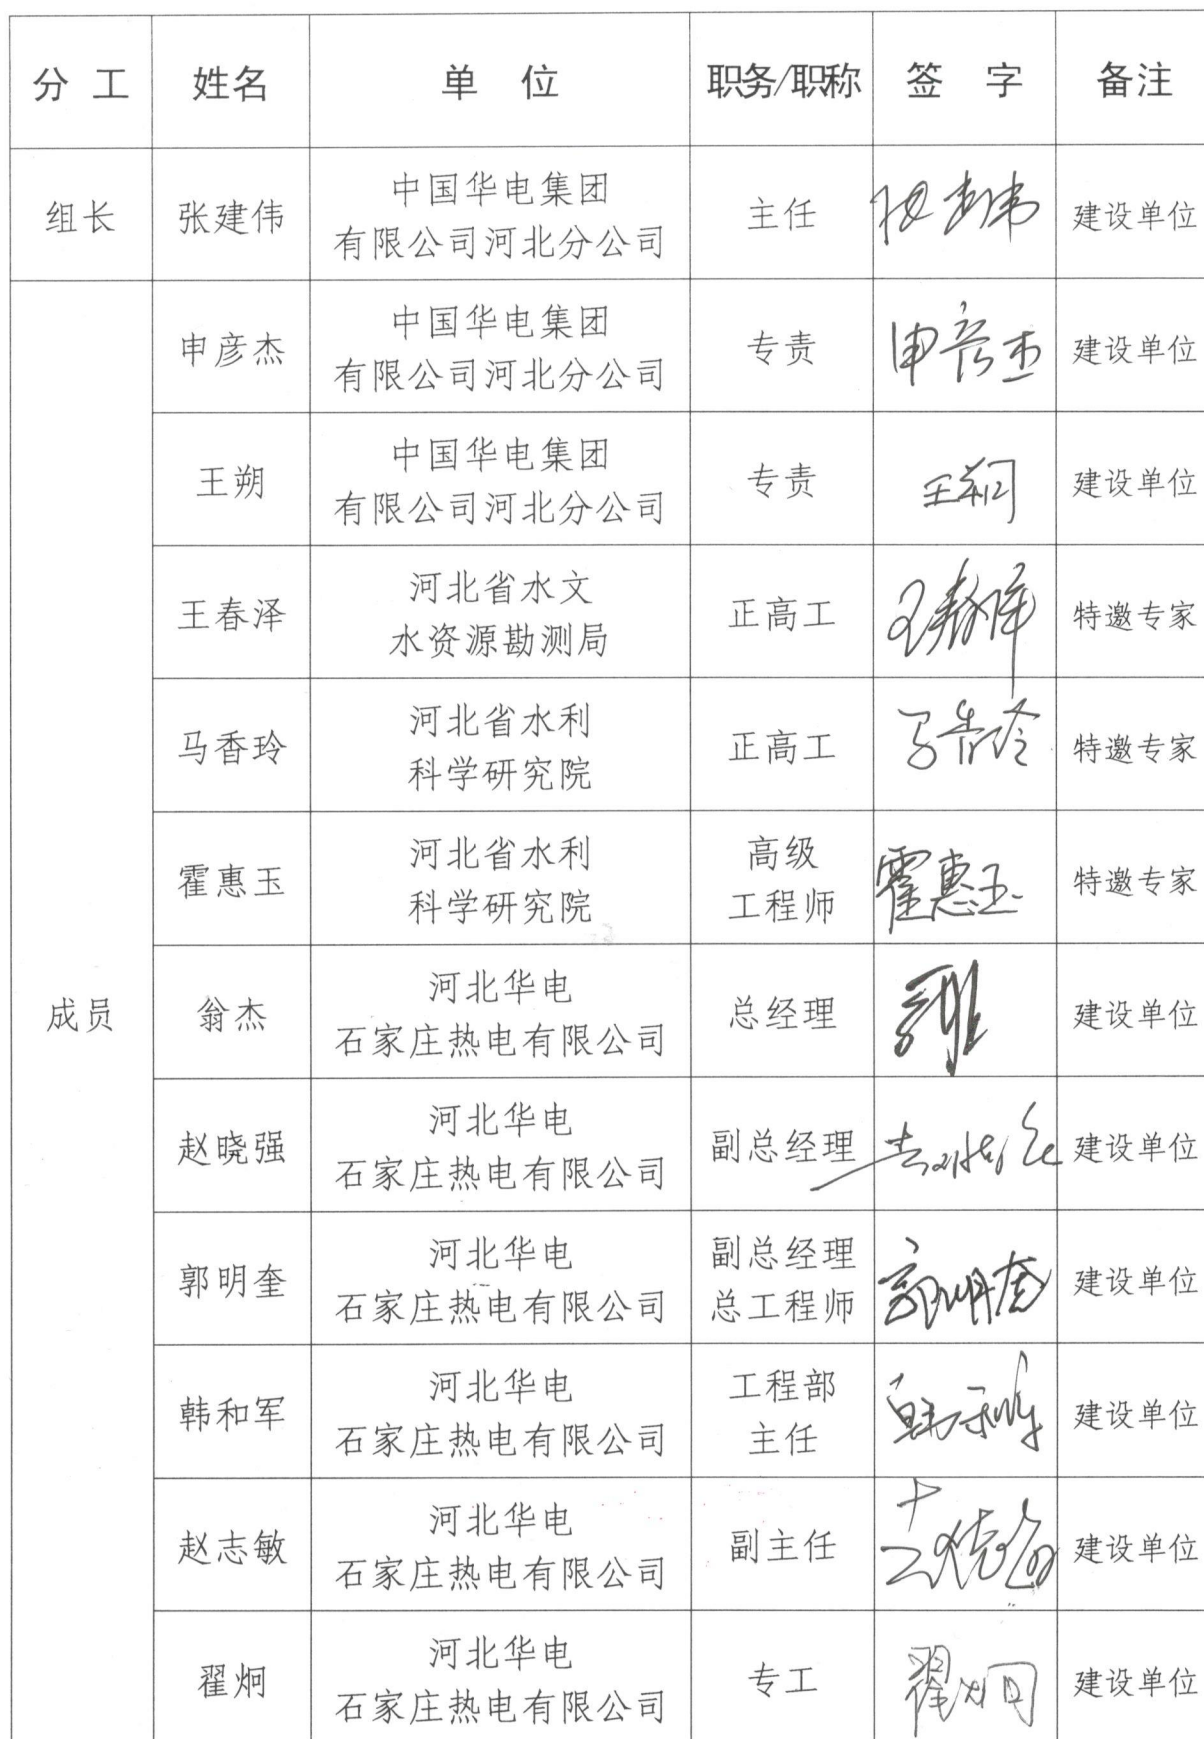 分 工 姓名 单 位 职务/职称 签 字 备注
组长 张建伟 中国华电集团 有限公司河北分公司 主任 张建伟 建设单位
成员
申彦杰 中国华电集团 有限公司河北分公司 专责 申彦杰 建设单位
王朔 中国华电集团 有限公司河北分公司 专责 王朔 建设单位
王春泽 河北省水文 水资源勘测局 正高工 王春泽 特邀专家
马香玲 河北省水利 科学研究院 正高工 马香玲 特邀专家
霍惠玉 河北省水利 科学研究院 高级 工程师 霍惠玉 特邀专家
翁杰 河北华电 石家庄热电有限公司 总经理 建设单位
赵晓强 河北华电 石家庄热电有限公司 副总经理 赵晓强 建设单位
郭明奎 河北华电 石家庄热电有限公司 副总经理 总工程师 郭明奎 建设单位
韩和军 河北华电 石家庄热电有限公司 工程部 主任 韩和军 建设单位
赵志敏 河北华电 石家庄热电有限公司 副主任 赵志敏 建设单位
翟炯 河北华电 石家庄热电有限公司 专工 翟炯 建设单位